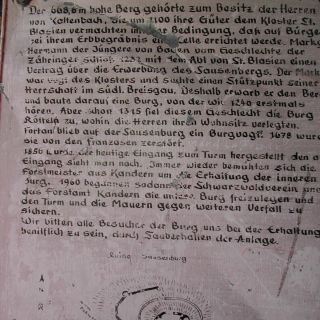 Der 668,6 m hohe Berg gehörte zum Besitz der Herren
von Kaltenbach, die um 1100 ihre Güter dem Kloster St.
Blasien vermachten in der Bedingung, daß auf Bürge
bei ihrem Erbbegräbnis eine Zelle errichtet werde. Markg
Hermann der Jüngere von Baden vom Geschlechte der
Zähringer schloß 1232 mit dem Abt von St. Blasien einen
Vertrag über die Erwerbung des Sausenbergs. Der Mark
war Vogt des Klosters und suchte einen Stützpunkt seiner
Herrschaft im südl. Breisgau. Deshalb erwarb er den Ber
und baute darauf eine Burg, von der wir 1240 erstmals
hören. Aber schon 1315 fiel diesem Geschlecht die Burg
Rötteln zu, wohin die Herren ihren Wohnsitz verlegten.
Fortan blieb auf der Sausenburg ein Burgvogt. 1678 wurde
sie von den Franzosen zerstört.
1850 wurde der heutige Eingang zum Turm hergestellt den a
Eingang sieht man noch. Immer wieder bemühten sich die
Forstmeister aus Kandern um die Erhaltung der inneren
Burg. 1960 begannen sodann der Schwarzwaldverein und
das Forstamt Kandern die untere Burg freizulegen und
den Turm und die Mauern gegen weiteren Verfall zu
sichern.
Wir bitten alle Besucher der Burg uns bei der Erhaltung
behilflich zu sein, durch Sauberhalten der Anlage.
Ruine Sausenburg